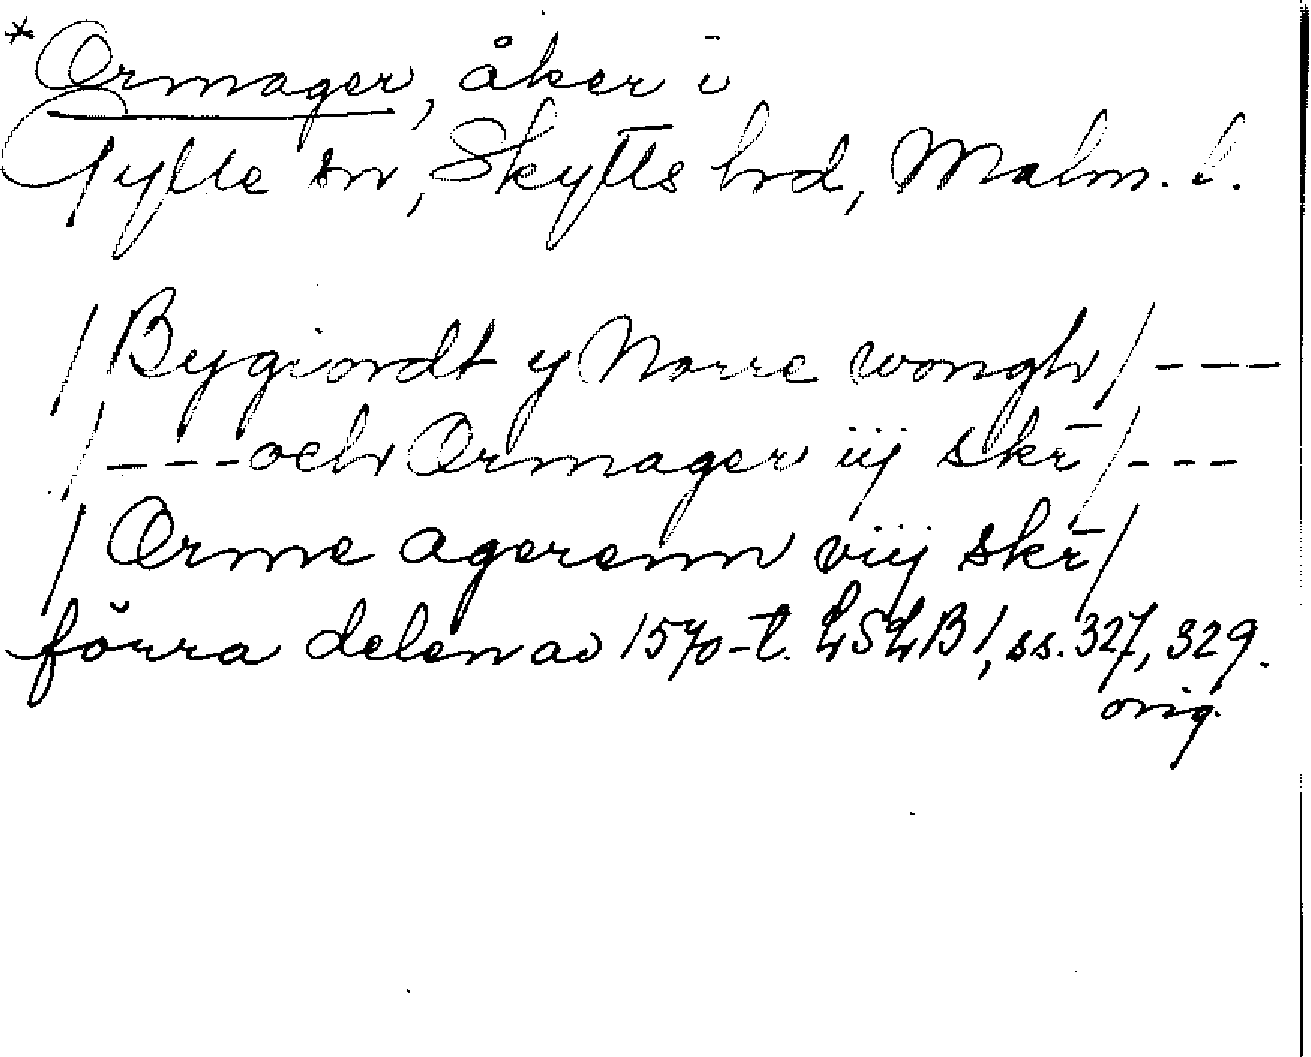 *Ormager, åker i
Gylle sn, Skytts hrd, Malm. l.
/Bygiordt y Norre wongh/ ---
/---och Ormager iij skr̄/---
/Orme agerenn viij skr̄/
förra delen av 1570-t. LSLB1, ss. 327, 329.
orig.